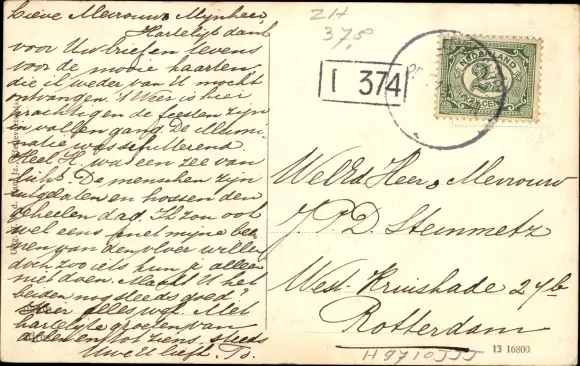 Lieve Mevrouw & Mijnheer,
Hartelijk dank
voor Uw brief en tevens
voor de mooie kaarten
die ik weder van U mocht
ontvangen. 't Weer is hier
prachtig en de feesten zijn
in vollen gang. De illumi-
natie was
Heel H. was een zee van
licht. De menschen zijn
uitgelaten en hossen den
geheelen dag. Ik zou ook
wel eens met mijne bee-
nen van den vloer willen
doch zoo iets kun je alleen
niet doen. Maakt U het
beiden nog steeds goed?
Hier alles wel. Met
hartelijke groeten van
allen en tot ziens steeds
Uwe U liefh. To.
ZH
37,5
I 374
NEDERLAND
2½
2½ CENT
WelEd. Heer & Mevrouw
J. P. D. Steinmetz
West-Kruiskade 27b
Rotterdam
H9710JJJ
13 16800